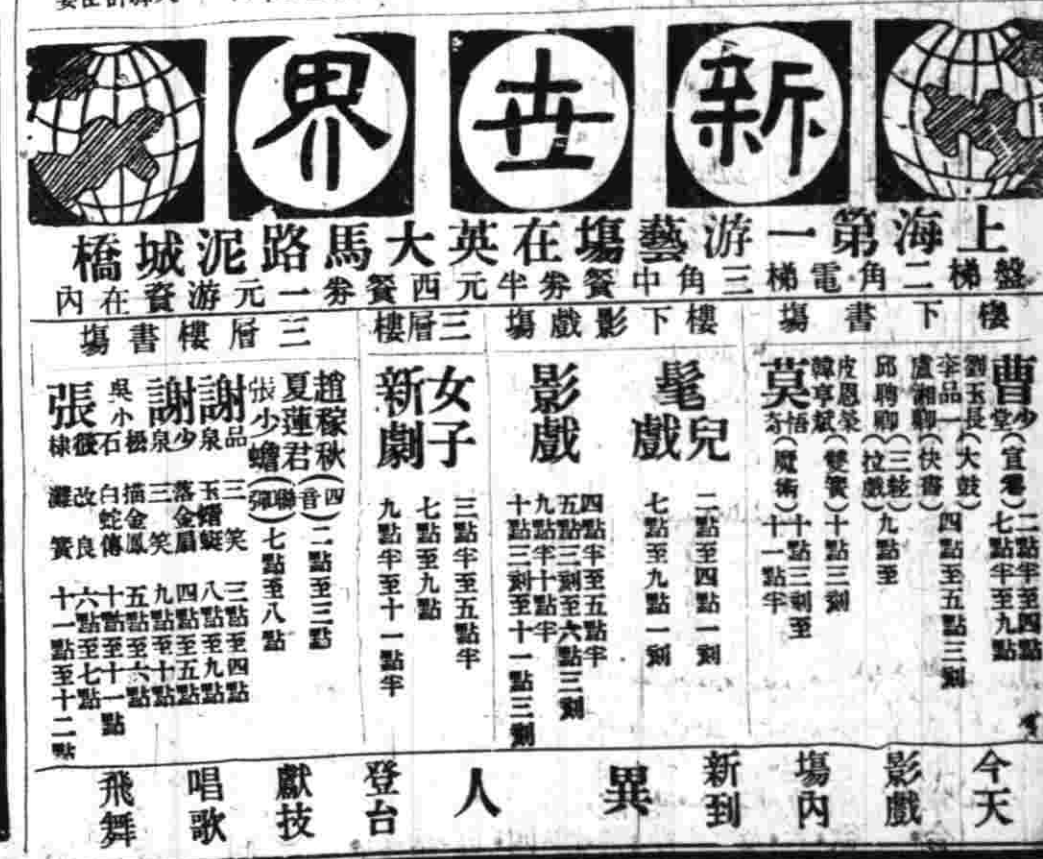 新世界
上海第一游藝塲在英大馬路泥城橋
盤梯二角電梯三角中餐券半元西餐券一元游資在內
樓下書塲
曹少堂(宣卷)二點半至四點 七點半至九點
劉玉長
李品一(大鼓)四點至五點三刻
盧湘卿(快書)
邱聘卿(三絃)九點至
皮恩榮(拉戲)
韓亨斌(雙簧)十點三刻
莫悟奇(魔術)十點三刻至十一點半
樓下影戲塲
髦兒戲
二點至四點一刻
七點至九點一刻
影戲
四點半至五點半
五點三刻至六點三刻
九點半十點半
十點三刻至十一點三刻
三層樓
女子新劇
三點半至五點半
七點至九點
九點半至十一點半
三層樓書塲
趙稼秋(四音)二點至三點
夏蓮君(聯彈)七點至八點
張少蟾
謝品泉 三笑 三點至四點
玉蜻蜓 八點至九點
謝少泉 落金扇 四點至五點
三笑 九點至十點
吳小松 描金鳳 五點至六點
吳小石 白蛇傳 十點至十一點
張筱棣 改良灘簧 六點至七點
十一點至十二點
今天影戲塲內新到異人登台獻技唱歌飛舞